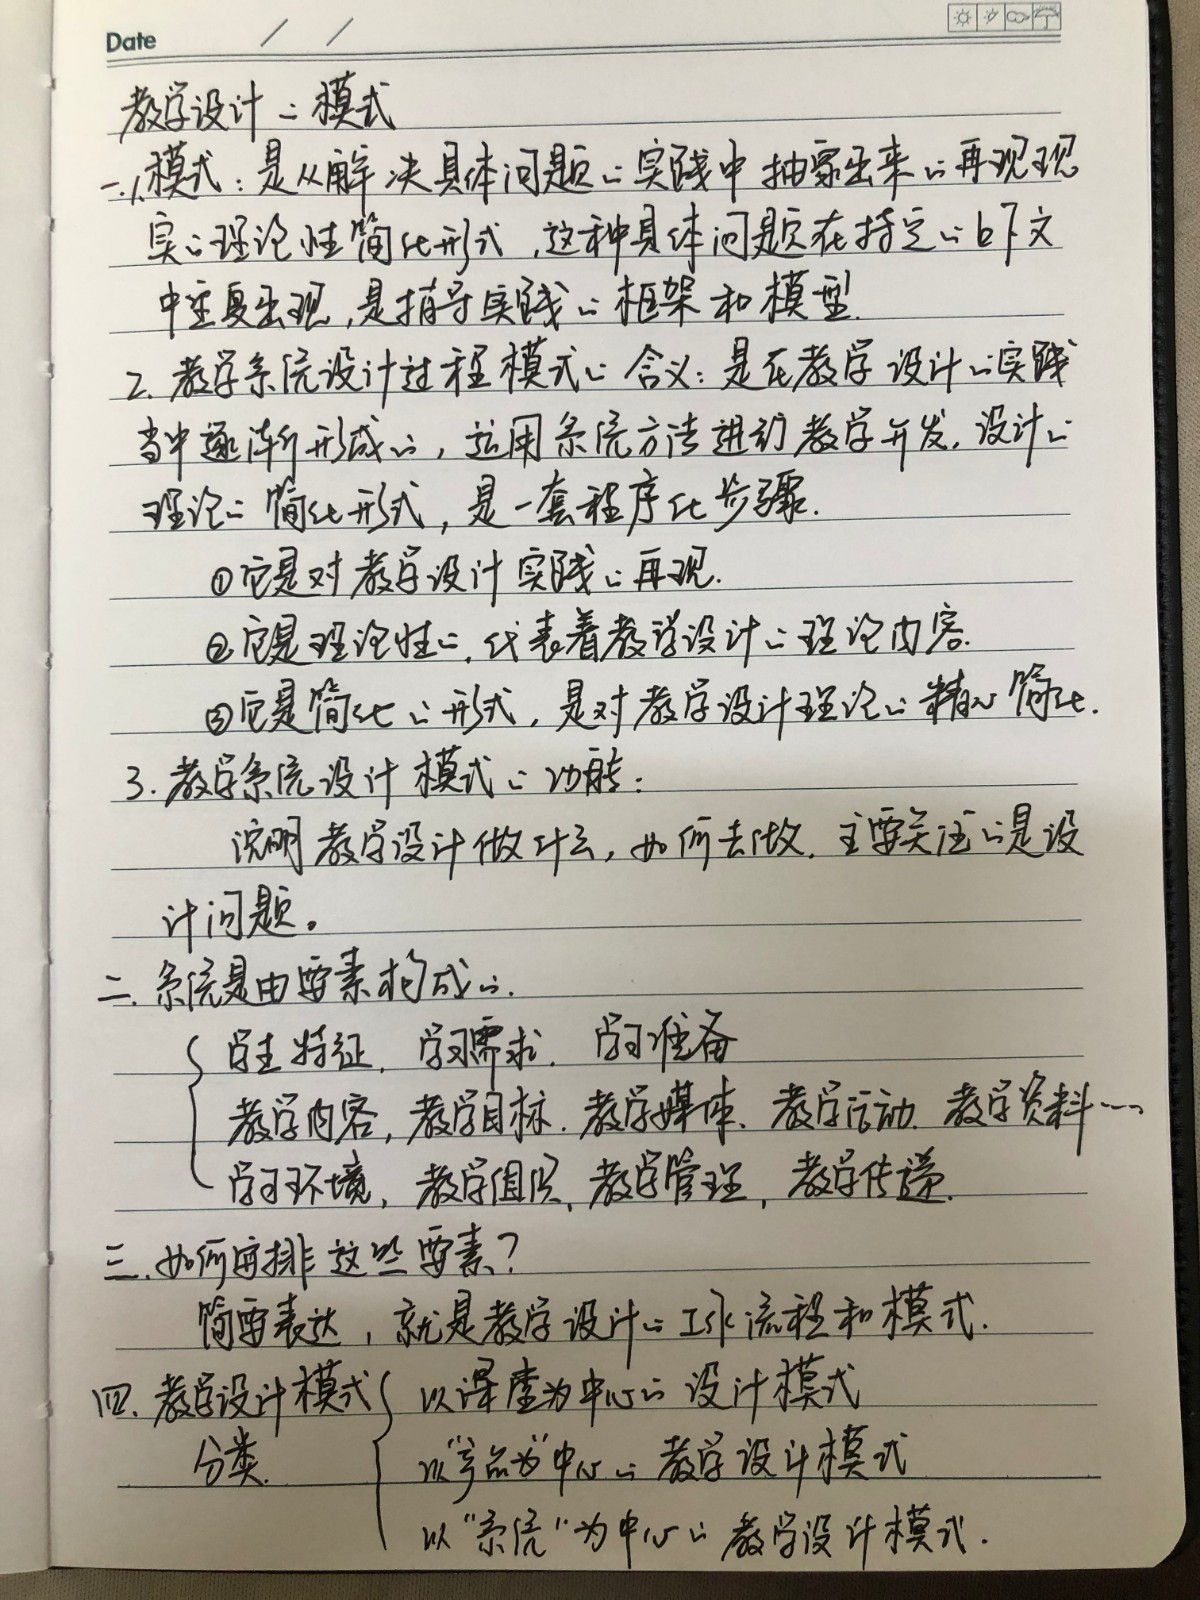 Date / /
教学设计的模式
一.1.模式：是从解决具体问题的实践中抽象出来的再现现
实的理论性简化形式，这种具体问题在特定的上下文
中重复出现，是指导实践的框架和模型.
2.教学系统设计过程模式的含义：是在教学设计的实践
当中逐渐形成的，运用系统方法进行教学开发、设计的
理论的简化形式，是一套程序化步骤.
①它是对教学设计实践的再现.
②它是理论性的，代表着教学设计的理论内容.
③它是简化的形式，是对教学设计理论的精心简化.
3.教学系统设计模式的功能：
说明教学设计做什么，如何去做，主要关注的是设
计问题。
二.系统是由要素构成的.
学生特征、学习需求、学习准备
教学内容，教学目标、教学媒体、教学活动、教学资料……
学习环境，教学组织、教学管理，教学传递.
三.如何安排这些要素？
简要表达，就是教学设计的工作流程和模式.
四.教学设计模式 以课堂为中心的设计模式
分类. 以“产品为”中心的教学设计模式
以“系统”为中心的教学设计模式.